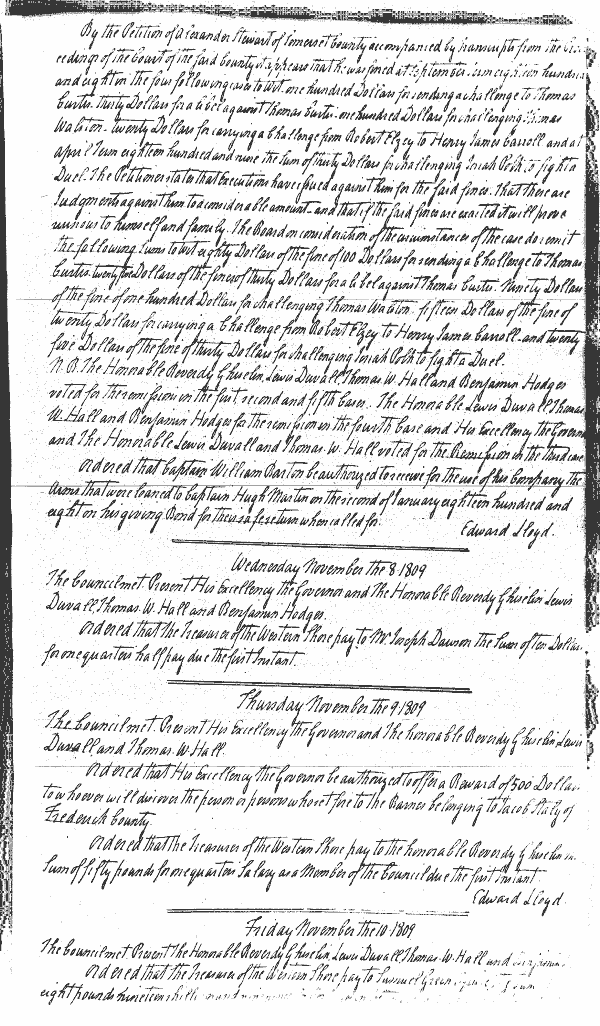 By the Petition of Alexander Stewart of Somerset County accompanied by transcripts from the
ceedings of the Court of the said County it appears that he was fined at September Term eighteen hundred
and eight in the four following cases to Wit, one hundred Dollars for sending a challenge to Thomas
Curtis, thirty Dollars for a libel against Thomas Curtis, one hundred Dollars for challenging Thomas
Walston, twenty Dollars for carrying a Challenge from Robert Elzey to Henry James Carroll and at
April Term eighteen hundred and nine the Sum of thirty Dollars for challenging Josiah Polk to fight a
Duel. The Petitioner states that executions have issued against him for the said fines. That there are
Judgments against him to a considerable amount and that if the said fines are exacted it will prove
ruinous to himself and family. The Board on consideration of the circumstances of the case do remit
the following sums to wit eighty Dollars of the fine of 100 Dollars for sending a Challenge to Thomas
Curtis. twenty five Dollars of the fine of thirty Dollars for a libel against Thomas Curtis. Ninety Dollars
of the fine of one hundred Dollars for challenging Thomas Walston. fifteen Dollars of the fine of
twenty Dollars for carrying a Challenge from Robert Elzey to Henry James Carroll. and twenty
five Dollars of the fine of thirty Dollars for challenging Josiah Polk to fight a Duel.
N.B. The Honorable Reverdy Ghiselin, Lewis Duvall, Thomas W. Hall and Benjamin Hodges
voted for the remission in the first, second and fifth cases. The Honorable Lewis Duvall Thomas
W. Hall and Benjamin Hodges for the remission in the fourth case and His Excellency the Govern
and The Honorable Lewis Duvall and Thomas W. Hall voted for the Remission in the third case
Ordered that Captain William Barton be authorized to receive for the use of his Company the
Arms that were loaned to Captain Hugh Martin on the second of January eighteen hundred and
eight on his giving Bond for their safe return when called for.
Edward Lloyd.
Wednesday November the 8. 1809
The Council met Present His Excellency the Governor and The Honorable Reverdy Ghiselin Lewis
Duvall Thomas W. Hall and Benjamin Hodges.
Ordered that The Treasurer of the Western Shore pay to Mr Joseph Dawson the Sum of ten Dollars
for one quarters half pay due the first Instant.
Thursday November the 9. 1809
The Council met. Present His Excellency the Governor and The honorable Reverdy Ghiselin Lewis
Duvall and Thomas W. Hall.
Ordered that His Excellency the Governor be authorized to offer a Reward of 500 Dollars
to whoever will discover the person or persons who set fire to the Barnes belonging to Jacob Staly of
Frederick County.
Ordered that the Treasurer of the Western Shore pay to the honorable Reverdy Ghiselin
Sum of fifty pounds for one quarters Salary as a Member of the Council due the first Instant
Edward Lloyd.
Friday November the 10. 1809
The Council met Present The Honorable Reverdy Ghiselin Lewis Duvall Thomas W. Hall and
Ordered that the Treasurer of the Western Shore pay to Samuel Green
eight pounds nineteen shillings and